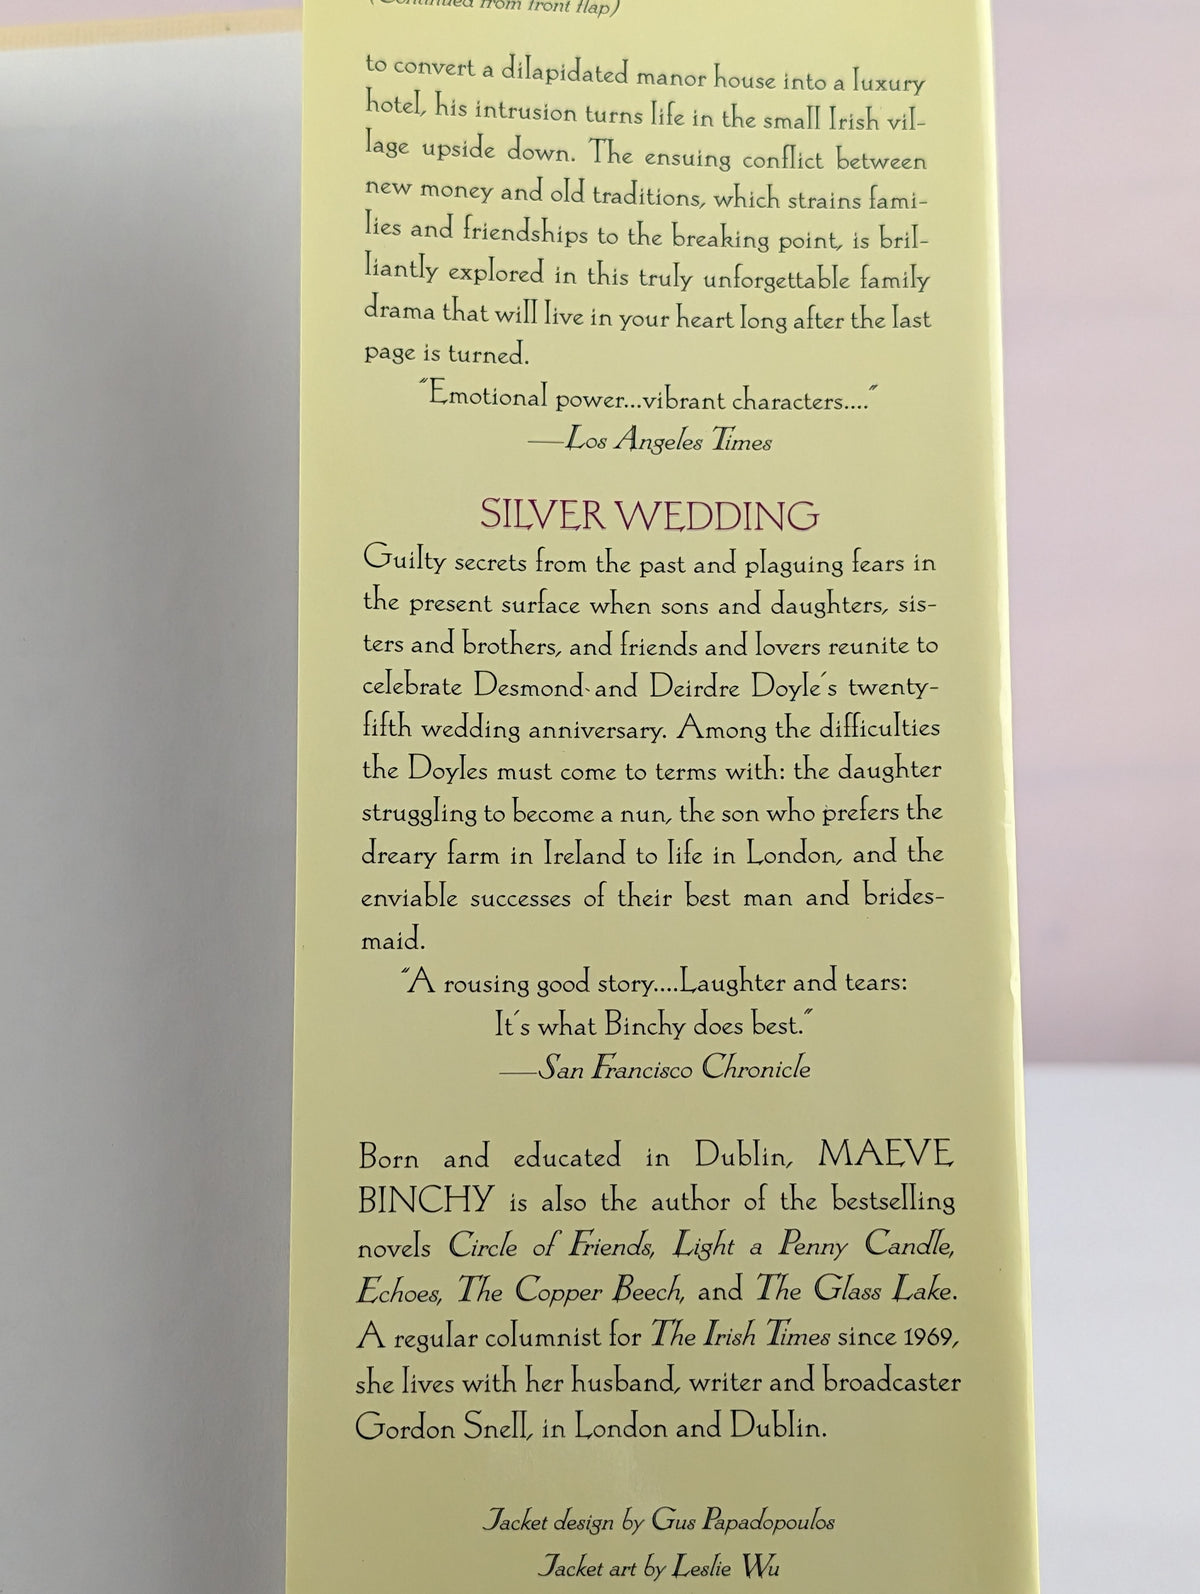 (Continued from front flap)
to convert a dilapidated manor house into a luxury
hotel, his intrusion turns life in the small Irish vil-
lage upside down. The ensuing conflict between
new money and old traditions, which strains fami-
lies and friendships to the breaking point, is bril-
liantly explored in this truly unforgettable family
drama that will live in your heart long after the last
page is turned.
"Emotional power...vibrant characters...."
—Los Angeles Times
SILVER WEDDING
Guilty secrets from the past and plaguing fears in
the present surface when sons and daughters, sis-
ters and brothers, and friends and lovers reunite to
celebrate Desmond and Deirdre Doyle's twenty-
fifth wedding anniversary. Among the difficulties
the Doyles must come to terms with: the daughter
struggling to become a nun, the son who prefers the
dreary farm in Ireland to life in London, and the
enviable successes of their best man and brides-
maid.
"A rousing good story....Laughter and tears:
It's what Binchy does best."
—San Francisco Chronicle
Born and educated in Dublin, MAEVE
BINCHY is also the author of the bestselling
novels Circle of Friends, Light a Penny Candle,
Echoes, The Copper Beech, and The Glass Lake.
A regular columnist for The Irish Times since 1969,
she lives with her husband, writer and broadcaster
Gordon Snell, in London and Dublin.
Jacket design by Gus Papadopoulos
Jacket art by Leslie Wu